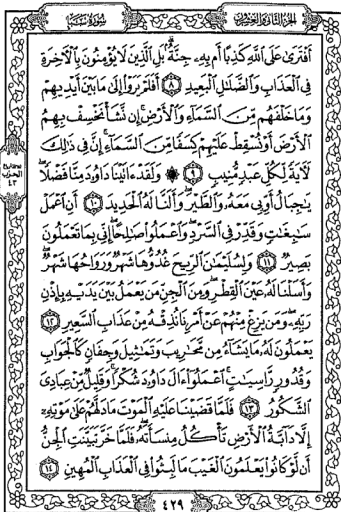 الجزء الثاني والعشرون
سورة سبإ
أَفْتَرَىٰ عَلَى ٱللَّهِ كَذِبًا أَم بِهِۦ جِنَّةٌۢ بَلِ ٱلَّذِينَ لَا يُؤْمِنُونَ بِٱلْأَخِرَةِ
فِى ٱلْعَذَابِ وَٱلضَّلَٰلِ ٱلْبَعِيدِ ٨ أَفَلَمْ يَرَوْا۟ إِلَىٰ مَا بَيْنَ أَيْدِيهِمْ
وَمَا خَلْفَهُم مِّنَ ٱلسَّمَآءِ وَٱلْأَرْضِ إِن نَّشَأْ نَخْسِفْ بِهِمُ
ٱلْأَرْضَ أَوْ نُسْقِطْ عَلَيْهِمْ كِسَفًا مِّنَ ٱلسَّمَآءِ إِنَّ فِى ذَٰلِكَ
لَأَيَةً لِّكُلِّ عَبْدٍ مُّنِيبٍ ٩ وَلَقَدْ ءَاتَيْنَا دَاوُۥدَ مِنَّا فَضْلًا
يَٰجِبَالُ أَوِّبِى مَعَهُۥ وَٱلطَّيْرَ وَأَلَنَّا لَهُ ٱلْحَدِيدَ ١٠ أَنِ ٱعْمَلْ
سَٰبِغَٰتٍ وَقَدِّرْ فِى ٱلسَّرْدِ وَٱعْمَلُوا۟ صَٰلِحًا إِنِّى بِمَا تَعْمَلُونَ
بَصِيرٌ ١١ وَلِسُلَيْمَٰنَ ٱلرِّيحَ غُدُوُّهَا شَهْرٌ وَرَوَاحُهَا شَهْرٌ
وَأَسَلْنَا لَهُۥ عَيْنَ ٱلْقِطْرِ وَمِنَ ٱلْجِنِّ مَن يَعْمَلُ بَيْنَ يَدَيْهِ بِإِذْنِ
رَبِّهِۦ وَمَن يَزِغْ مِنْهُمْ عَنْ أَمْرِنَا نُذِقْهُ مِنْ عَذَابِ ٱلسَّعِيرِ ١٢
يَعْمَلُونَ لَهُۥ مَا يَشَآءُ مِن مَّحَٰرِيبَ وَتَمَٰثِيلَ وَجِفَانٍ كَٱلْجَوَابِ
وَقُدُورٍ رَّاسِيَٰتٍ ٱعْمَلُوٓا۟ ءَالَ دَاوُۥدَ شُكْرًا وَقَلِيلٌ مِّنْ عِبَادِىَ
ٱلشَّكُورُ ١٣ فَلَمَّا قَضَيْنَا عَلَيْهِ ٱلْمَوْتَ مَا دَلَّهُمْ عَلَىٰ مَوْتِهِۦٓ
إِلَّا دَآبَّةُ ٱلْأَرْضِ تَأْكُلُ مِنسَأَتَهُۥ فَلَمَّا خَرَّ تَبَيَّنَتِ ٱلْجِنُّ
أَن لَّوْ كَانُوا۟ يَعْلَمُونَ ٱلْغَيْبَ مَا لَبِثُوا۟ فِى ٱلْعَذَابِ ٱلْمُهِينِ ١٤
الحزب
٤٣
٤٢٩